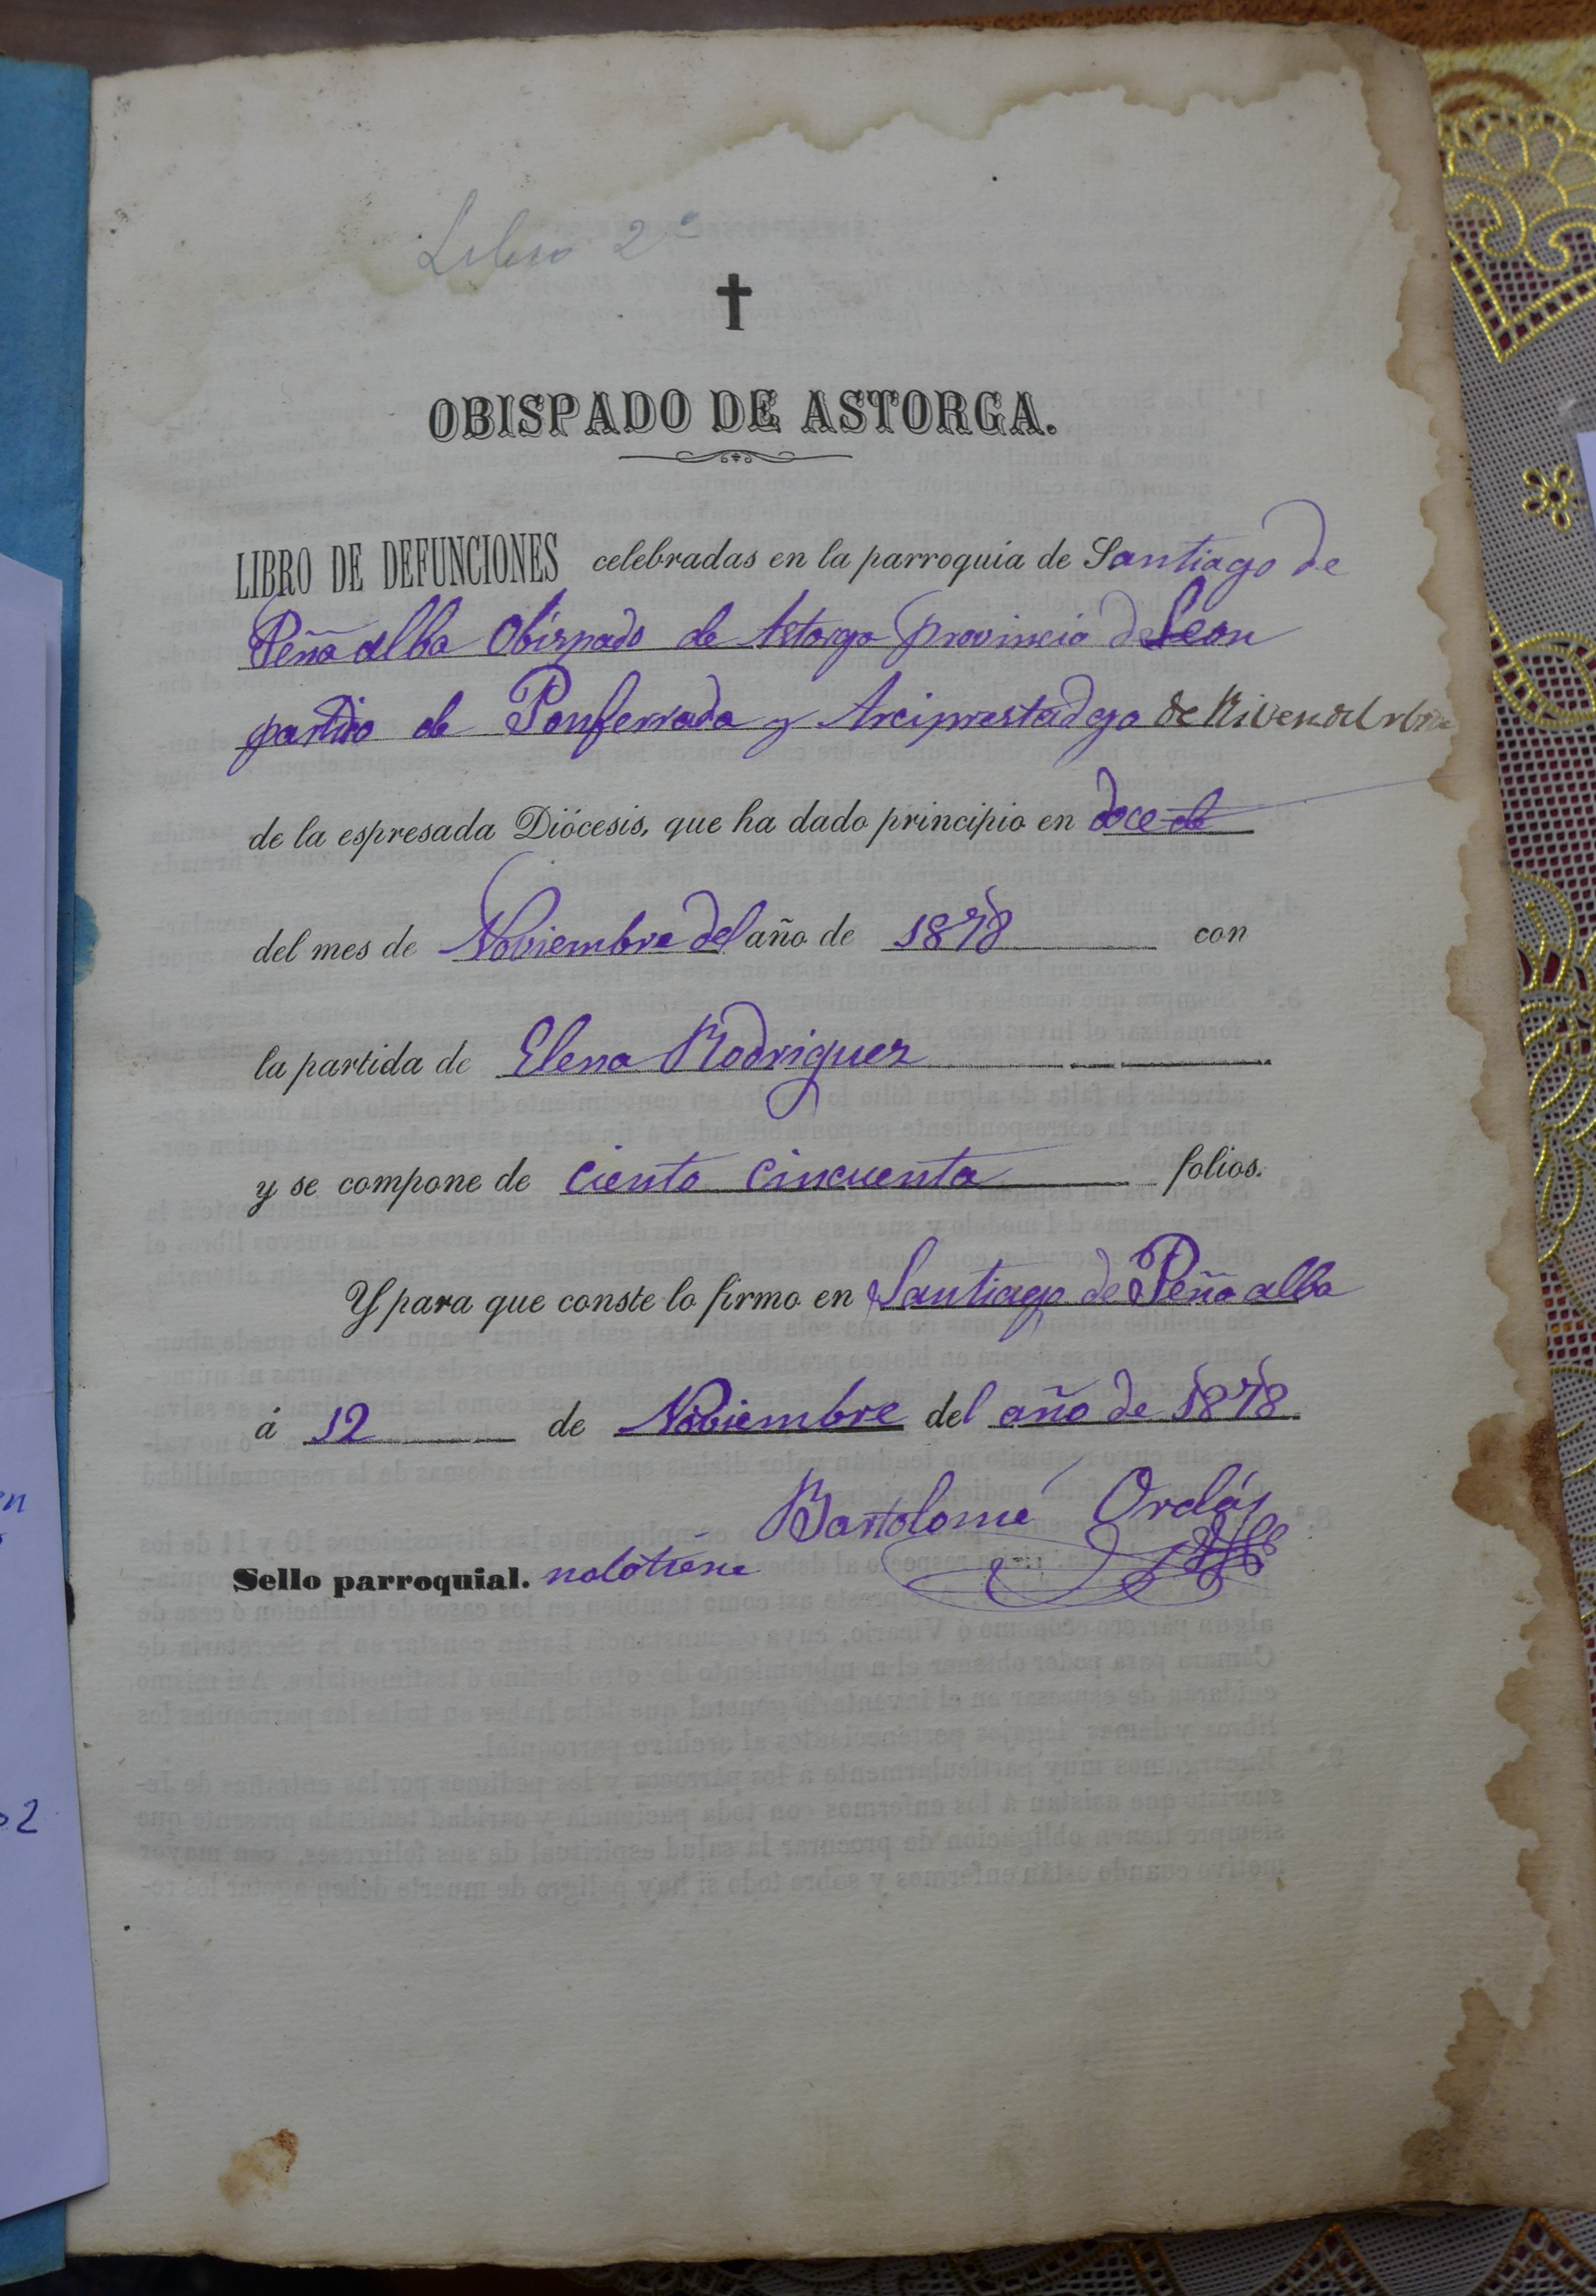 Libro 2º
OBISPADO DE ASTORGA.
LIBRO DE DEFUNCIONES celebradas en la parroquia de Santiago de
Peña alba Obispado de Astorga provincia de Leon
partido de Ponferrada y Arciprestadgo de
de la espresada Diócesis, que ha dado principio en doce de
del mes de Noviembre del año de 1878 con
la partida de Elena Rodriguez
y se compone de ciento cincuenta folios.
Y para que conste lo firmo en Santiago de Peña alba
á 12 de Noviembre del año de 1878
Bartolomé Ordás
Sello parroquial. nolotiene